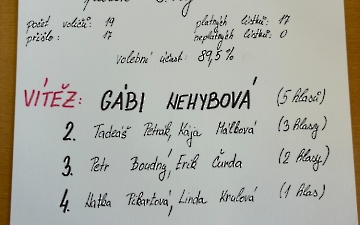 počet voličů: 19 platných lístků: 17
přišlo: 17 neplatných lístků: 0
volební účast: 89,5%
VÍTĚZ: GÁBI NEHYBOVÁ (5 hlasů)
2. Tadeáš Petrák, Kája Málková (3 hlasy)
3. Petr Boudný, Erik Čunda (2 hlasy)
4. Katka Pikartová, Linda Krulová (1 hlas)